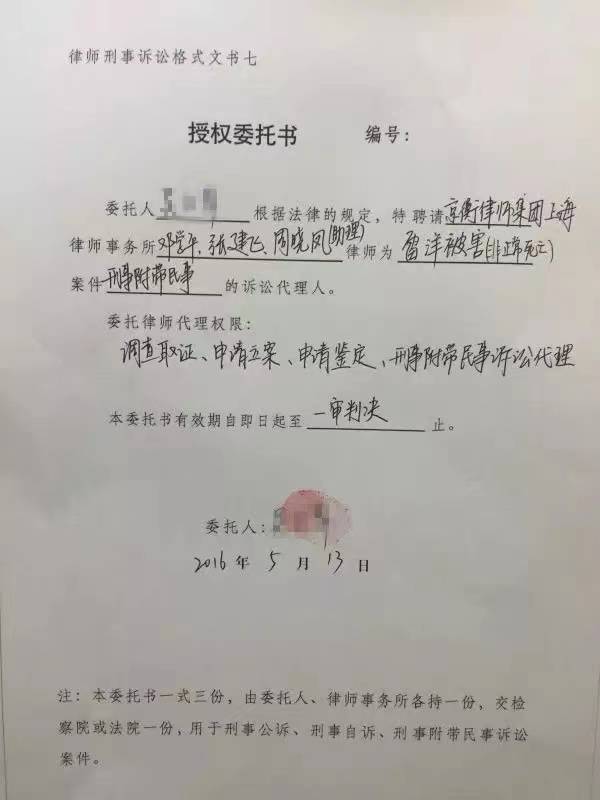 律师刑事诉讼格式文书七
授权委托书 编号：
委托人 根据法律的规定，特聘请京衡律师集团上海
律师事务所邓学平、张建飞、周晓凤(助理)律师为雷洋被害(非正常死亡)
案件刑事附带民事的诉讼代理人。
委托律师代理权限：
调查取证、申请立案、申请鉴定、刑事附带民事诉讼代理
本委托书有效期自即日起至一审判决止。
委托人：
2016年5月13日
注：本委托书一式三份，由委托人、律师事务所各持一份，交检
察院或法院一份，用于刑事公诉、刑事自诉、刑事附带民事诉讼
案件。